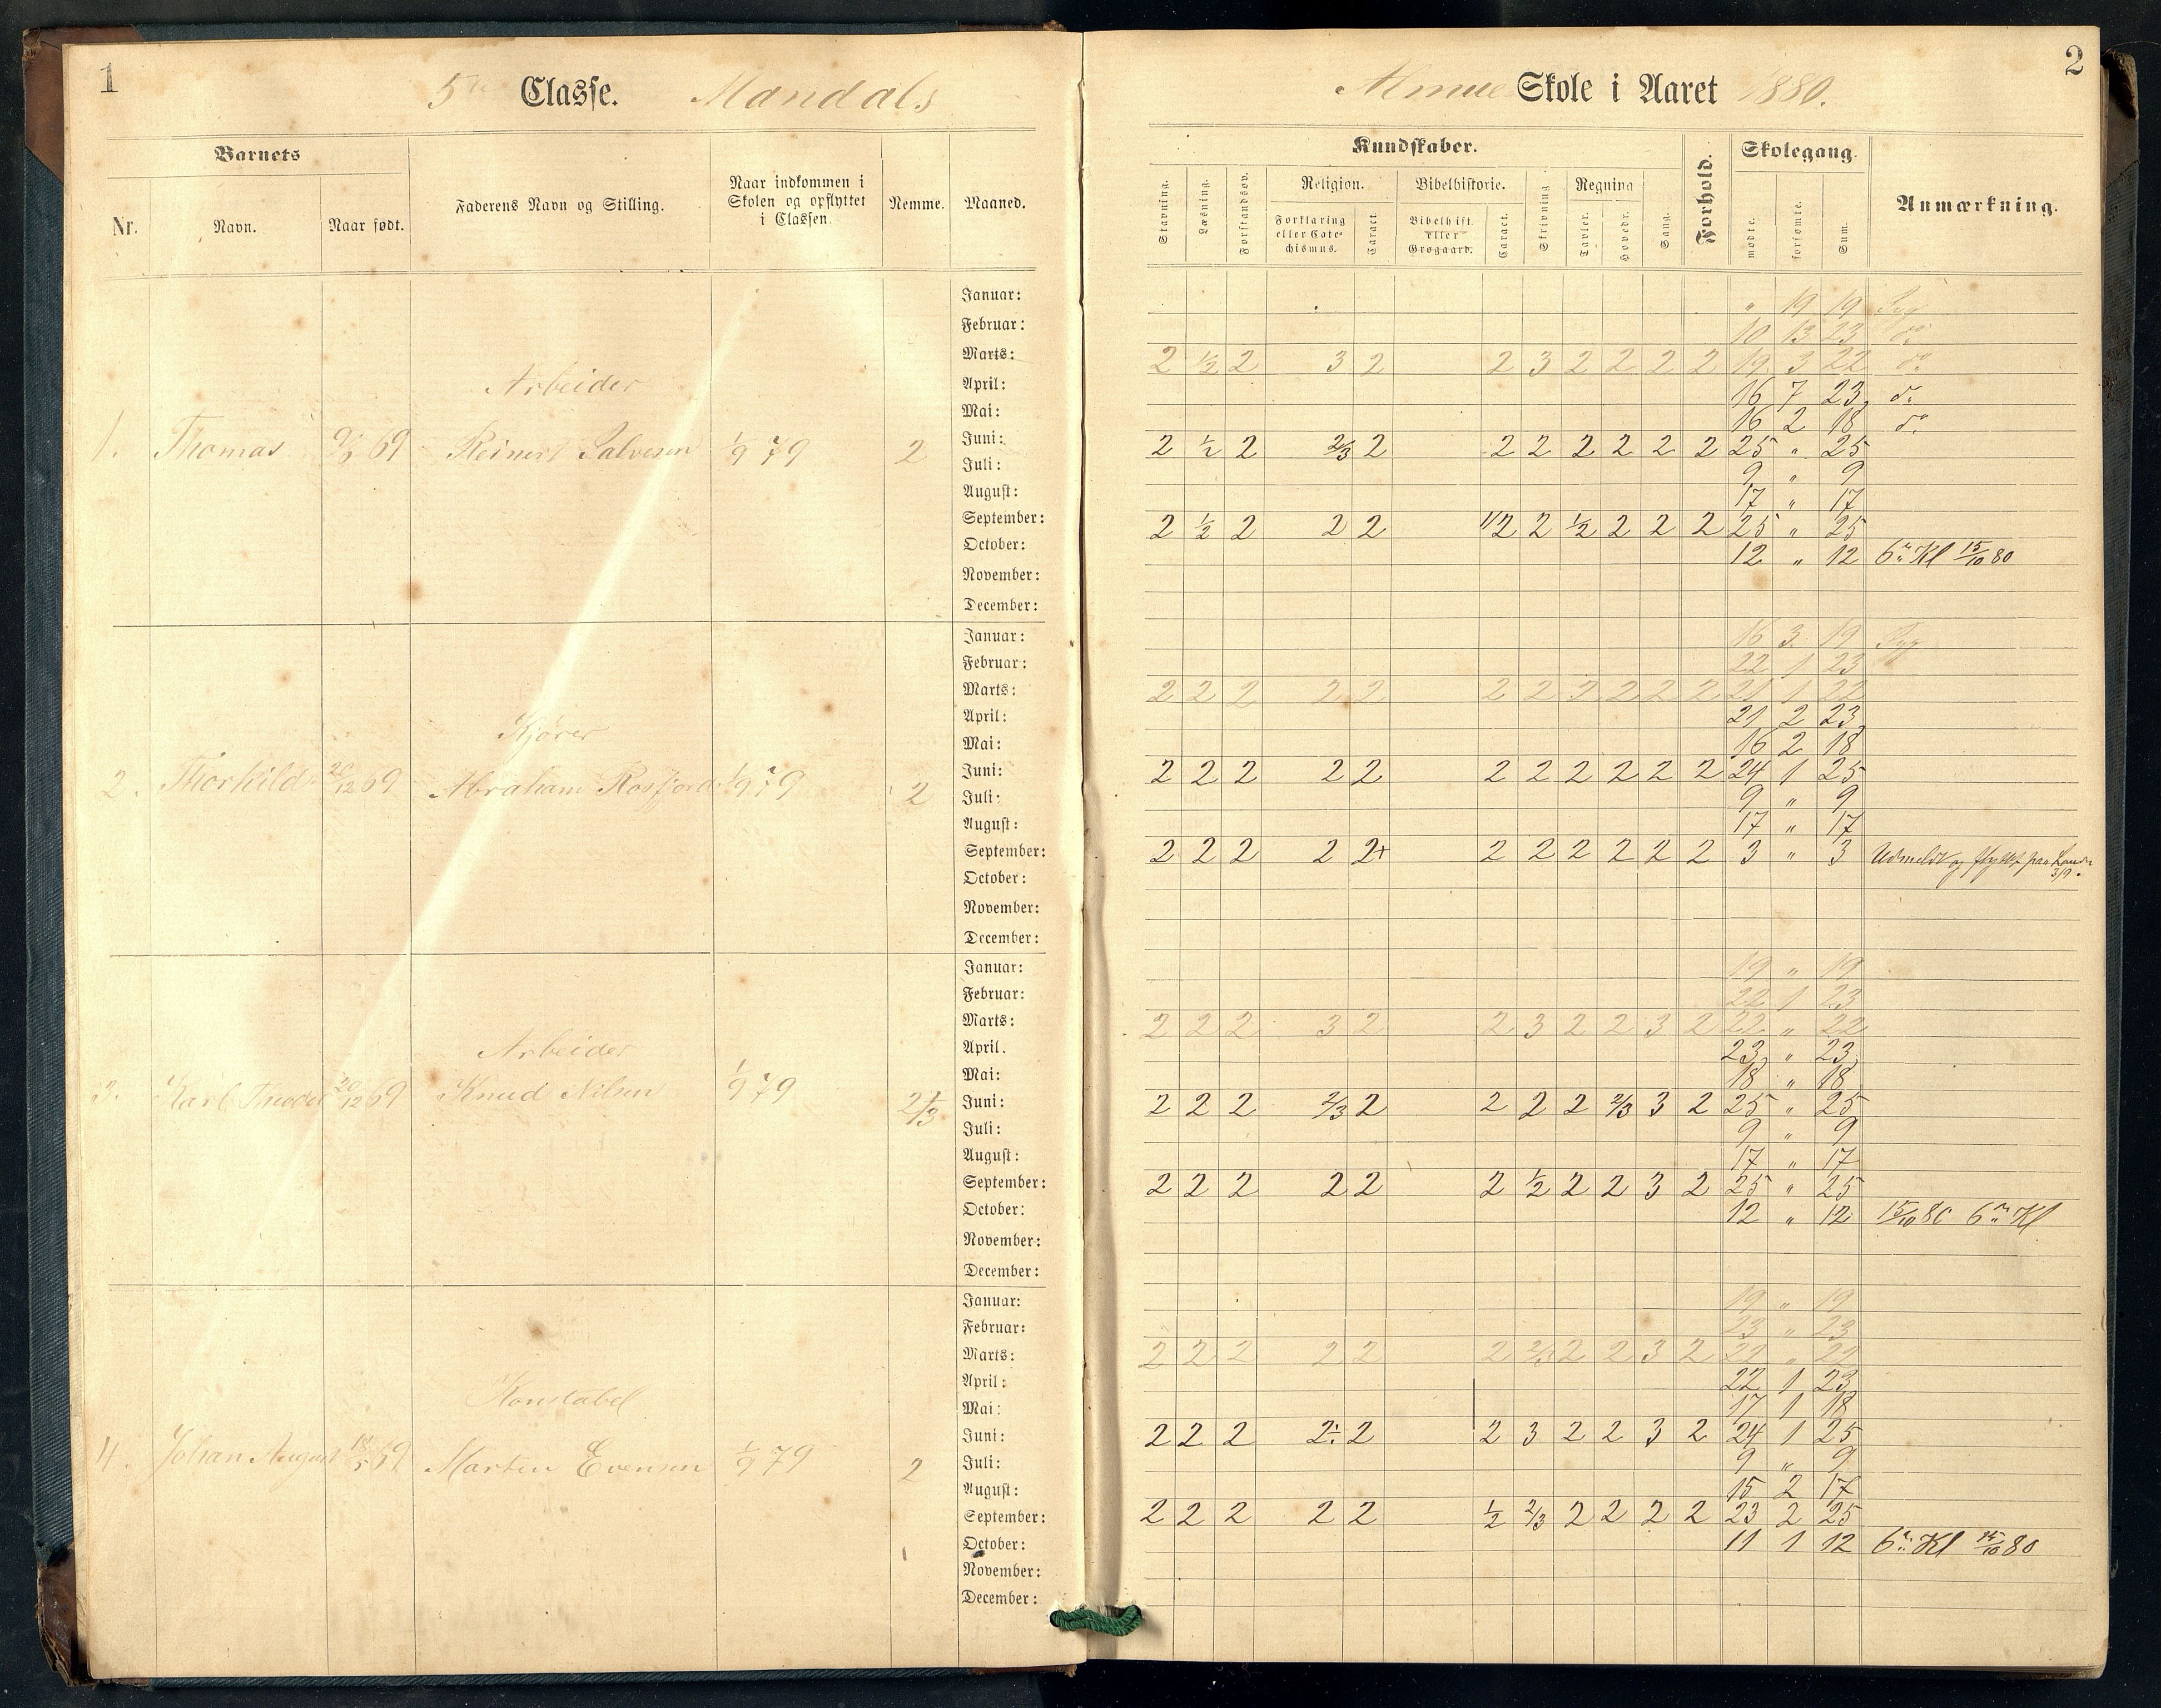 1
5te Classe. Mandals
Barnets
Nr.
Navn.
Naar født.
Faderens Navn og Stilling.
Naar indkommen i
Skolen og opflyttet
i Classen.
Nemme.
Maaned.
Januar:
Februar:
Marts:
Arbeider
April:
Mai:
1. Thomas 9/3 69 Reinert Salvesen 1/9 79 2
Juni:
Juli:
August:
September:
October:
November:
December:
Januar:
Februar:
Marts:
Kjører
April:
Mai:
2. Thorkild 20/12 69 Abraham Rosfjord 1/9 79 2
Juni:
Juli:
August:
September:
October:
November:
December:
Januar:
Februar:
Marts:
Arbeider
April.
Mai:
3. Karl Theodor 20/12 69 Knud Nilsen 1/9 79 2/3
Juni:
Juli:
August:
September:
October:
November:
December:
Januar:
Februar:
Marts:
Konstabel
April:
Mai:
4. Johan August 18/5 69 Martin Evensen 1/9 79 2
Juni:
Juli:
August:
September:
October:
November:
December:
2
Almue Skole i Aaret 1880.
Kundskaber.
Forhold.
Skolegang.
Anmærkning.
Stavning.
Læsning.
Forstandsøv.
Religion.
Forklaring
eller Cate-
chismus.
Caract.
Bibelhistorie.
Bibelhist.
eller
Grøgaard.
Caract.
Skrivning
Regning
Tavler.
Hovedr.
Sang.
mødte.
forsømte.
Sum.
" 19 19 Syg
10 13 23 do
2 1/2 2 3 2 2 3 2 2 2 2 19 3 22 do
16 7 23 do
16 2 18 do
2 1/2 2 2/3 2 2 2 2 2 2 2 25 " 25
9 " 9
17 " 17
2 1/2 2 2 2 1/2 2 1/2 2 2 2 25 " 25
12 " 12 6te Kl 15/10 80
16 3 19 Syg
22 1 23
2 2 2 2 2 2 2 2 2 2 2 21 1 22
21 2 23
16 2 18
2 2 2 2 2 2 2 2 2 2 2 24 1 25
9 " 9
17 " 17
2 2 2 2 2+ 2 2 2 2 2 2 3 " 3 Udmeldt og flyttet paa Landet
3/9.
19 " 19
22 1 23
2 2 2 3 2 2 3 2 2 3 2 22 " 22
23 " 23
18 " 18
2 2 2 2/3 2 2 2 2 2/3 3 2 25 " 25
9 " 9
17 " 17
2 2 2 2 2 2 1/2 2 2 3 2 25 " 25
12 " 12 15/10 80 6te Kl
19 " 19
23 " 23
2 2 2 2 2 2 2/3 2 2 3 2 22 " 22
22 1 23
17 1 18
2 2 2 2÷ 2 2 3 2 2 3 2 24 1 25
9 " 9
15 2 17
2 2 2 2 2 1/2 2/3 2 2 2 2 23 2 25
11 1 12 6te Kl 15/10 80